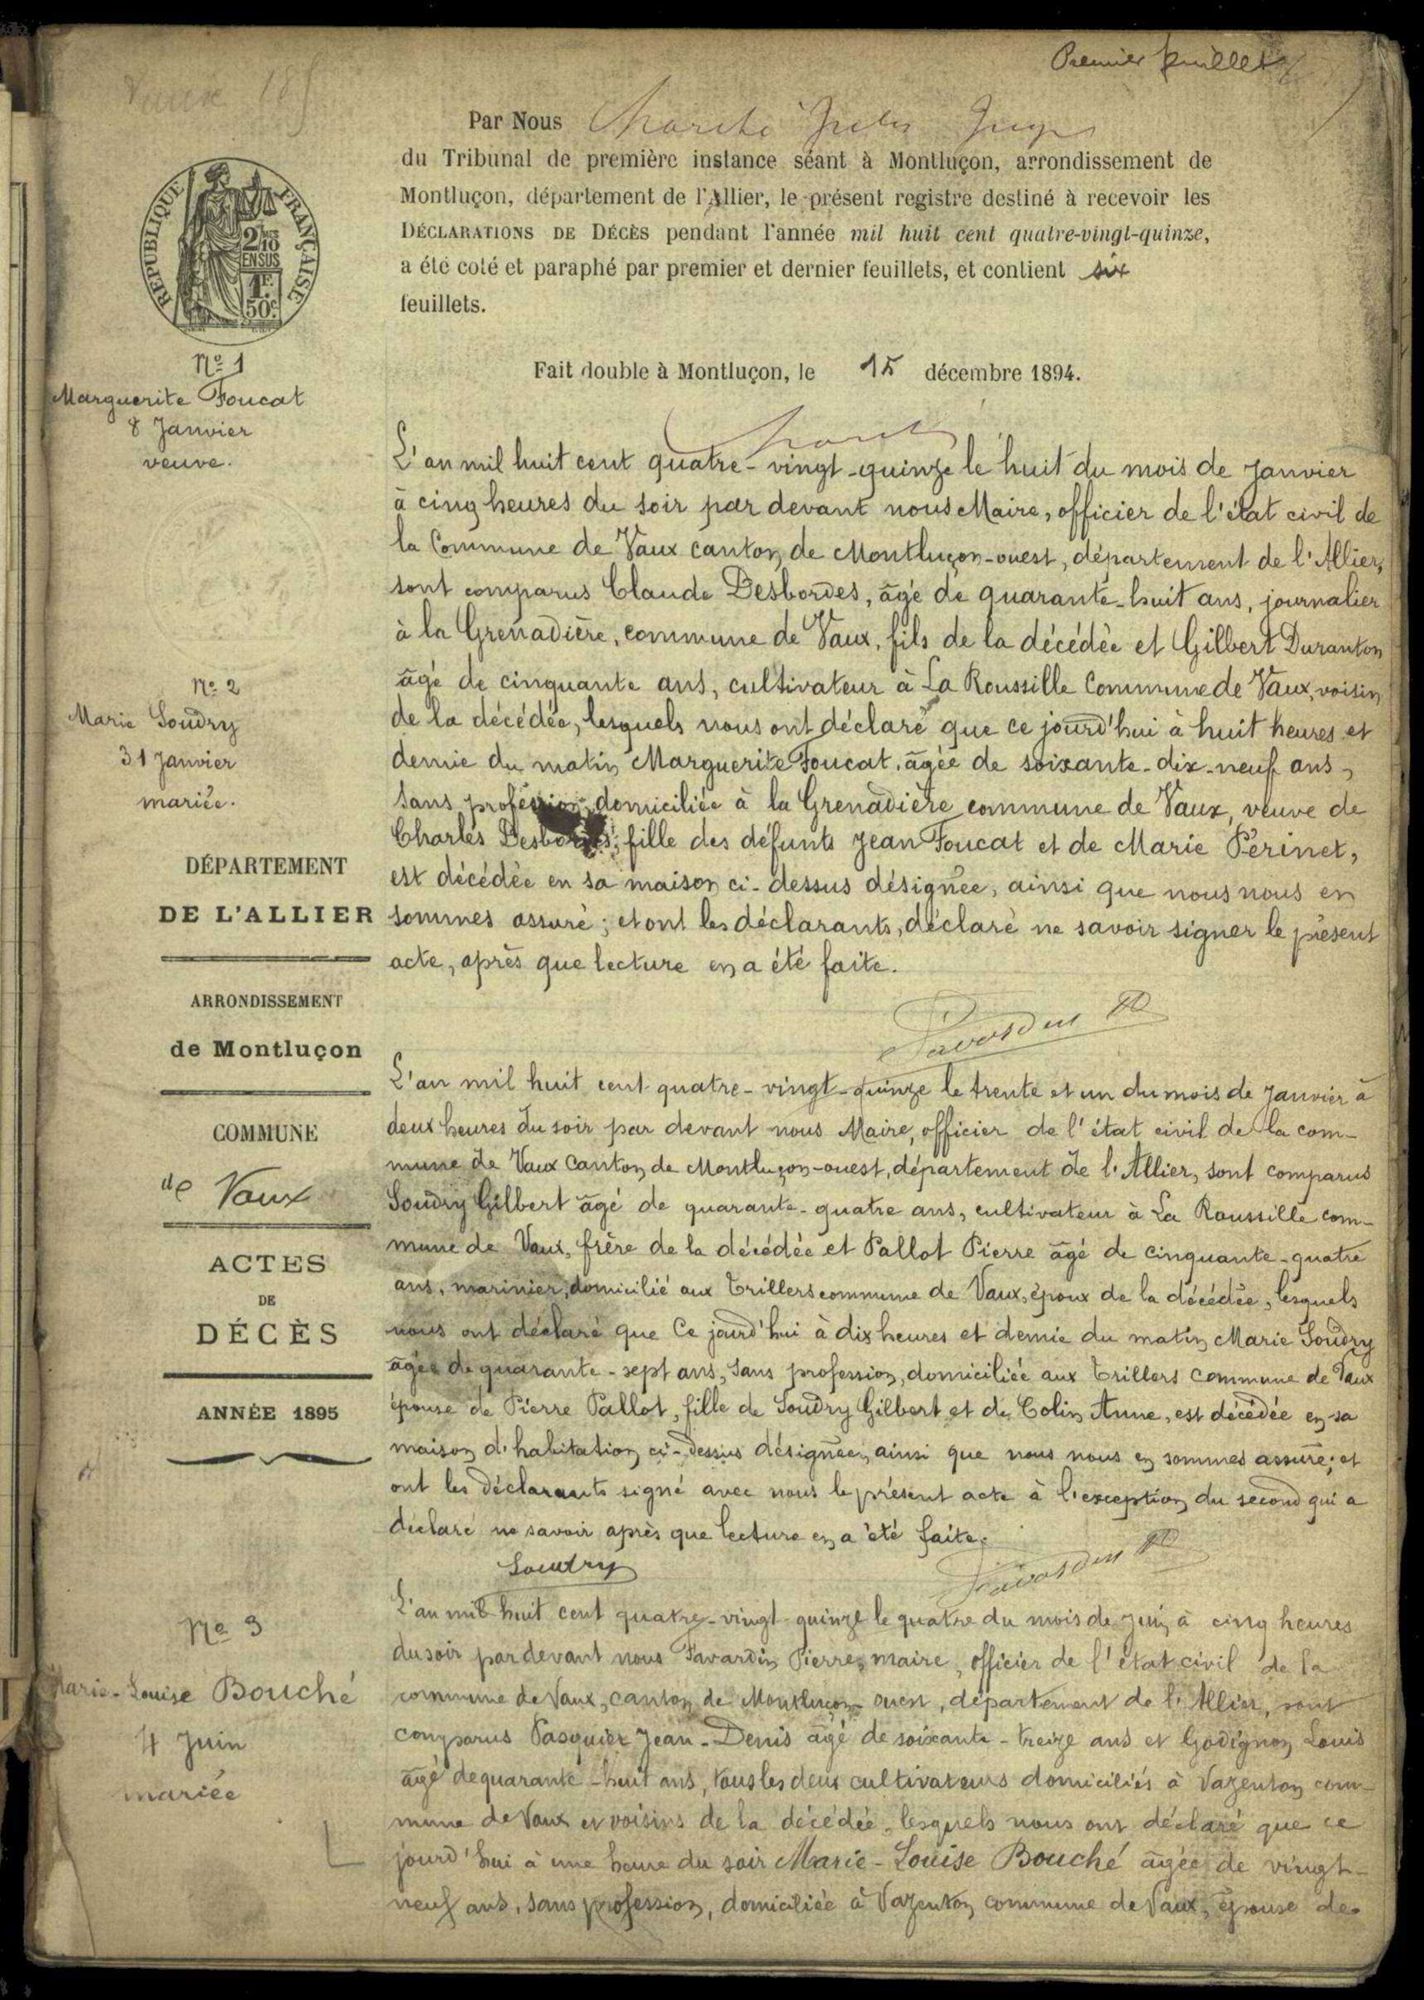 Premier feuillet
RÉPUBLIQUE FRANÇAISE
2/10
EN SUS
1F.
50c.
Par Nous
du Tribunal de première instance séant à Montluçon, arrondissement de
Montluçon, département de l'Allier, le présent registre destiné à recevoir les
DÉCLARATIONS DE DÉCÈS pendant l'année mil huit cent quatre-vingt-quinze,
a été coté et paraphé par premier et dernier feuillets, et contient six
feuillets.
Fait double à Montluçon, le 15 décembre 1894.
No 1
Marguerite Foucat
8 Janvier
veuve.
L'an mil huit cent quatre-vingt-quinze le huit du mois de Janvier
à cinq heures du soir par devant nous Maire, officier de l'état civil de
la Commune de Vaux canton de Montluçon-ouest, département de l'Allier,
sont comparus Claude Desbordes, âgé de quarante-huit ans, journalier
à la Grenadière, commune de Vaux, fils de la décédée et Gilbert Duranton
âgé de cinquante ans, cultivateur à La Roussille Commune de Vaux, voisin
de la décédée, lesquels nous ont déclaré que ce jourd'hui à huit heures et
demie du matin Marguerite Foucat, âgée de soixante-dix-neuf ans,
sans profession, domiciliée à la Grenadière commune de Vaux, veuve de
Charles Desbordes, fille des défunts Jean Foucat et de Marie Périnet,
est décédée en sa maison ci-dessus désignée, ainsi que nous nous en
sommes assuré; et ont les déclarants, déclaré ne savoir signer le présent
acte, après que lecture en a été faite.
Favardin P
No 2
Marie Soudry
31 Janvier
mariée.
L'an mil huit cent quatre-vingt-quinze le trente et un du mois de Janvier à
deux heures du soir par devant nous Maire, officier de l'état civil de la com-
mune de Vaux Canton de Montluçon-ouest, département de l'Allier, sont comparus
Soudry Gilbert âgé de quarante-quatre ans, cultivateur à La Roussille com-
mune de Vaux, frère de la décédée et Pallot Pierre âgé de cinquante-quatre
ans, marinier, domicilié aux Trillers commune de Vaux, époux de la décédée, lesquels
nous ont déclaré que Ce jourd'hui à dix heures et demie du matin Marie Soudry
âgée de quarante-sept ans, sans profession, domiciliée aux Trillers Commune de Vaux
épouse de Pierre Pallot, fille de Soudry Gilbert et de Colin Anne, est décédée en sa
maison d'habitation ci-dessus désignée, ainsi que nous nous en sommes assuré; et
ont les déclarants signé avec nous le présent acte à l'exception du second qui a
déclaré ne savoir après que lecture en a été faite.
Soudry
Favardin P
DÉPARTEMENT
DE L'ALLIER
ARRONDISSEMENT
de Montluçon
COMMUNE
de Vaux
ACTES
DE
DÉCÈS
ANNÉE 1895
No 3
Marie-Louise Bouché
4 Juin
mariée
L'an mil huit cent quatre-vingt-quinze le quatre du mois de Juin à cinq heures
du soir par devant nous Favardin Pierre, maire, officier de l'état civil de la
commune de Vaux, canton de Montluçon-ouest, département de l'Allier, sont
comparus Pasquier Jean-Denis âgé de soixante-treize ans et Godignon Louis
âgé de quarante-huit ans, tous les deux cultivateurs domiciliés à Vazenton com-
mune de Vaux et voisins de la décédée, lesquels nous ont déclaré que ce
jourd'hui à une heure du soir Marie-Louise Bouché âgée de vingt-
neuf ans, sans profession, domiciliée à Vazenton commune de Vaux, épouse de